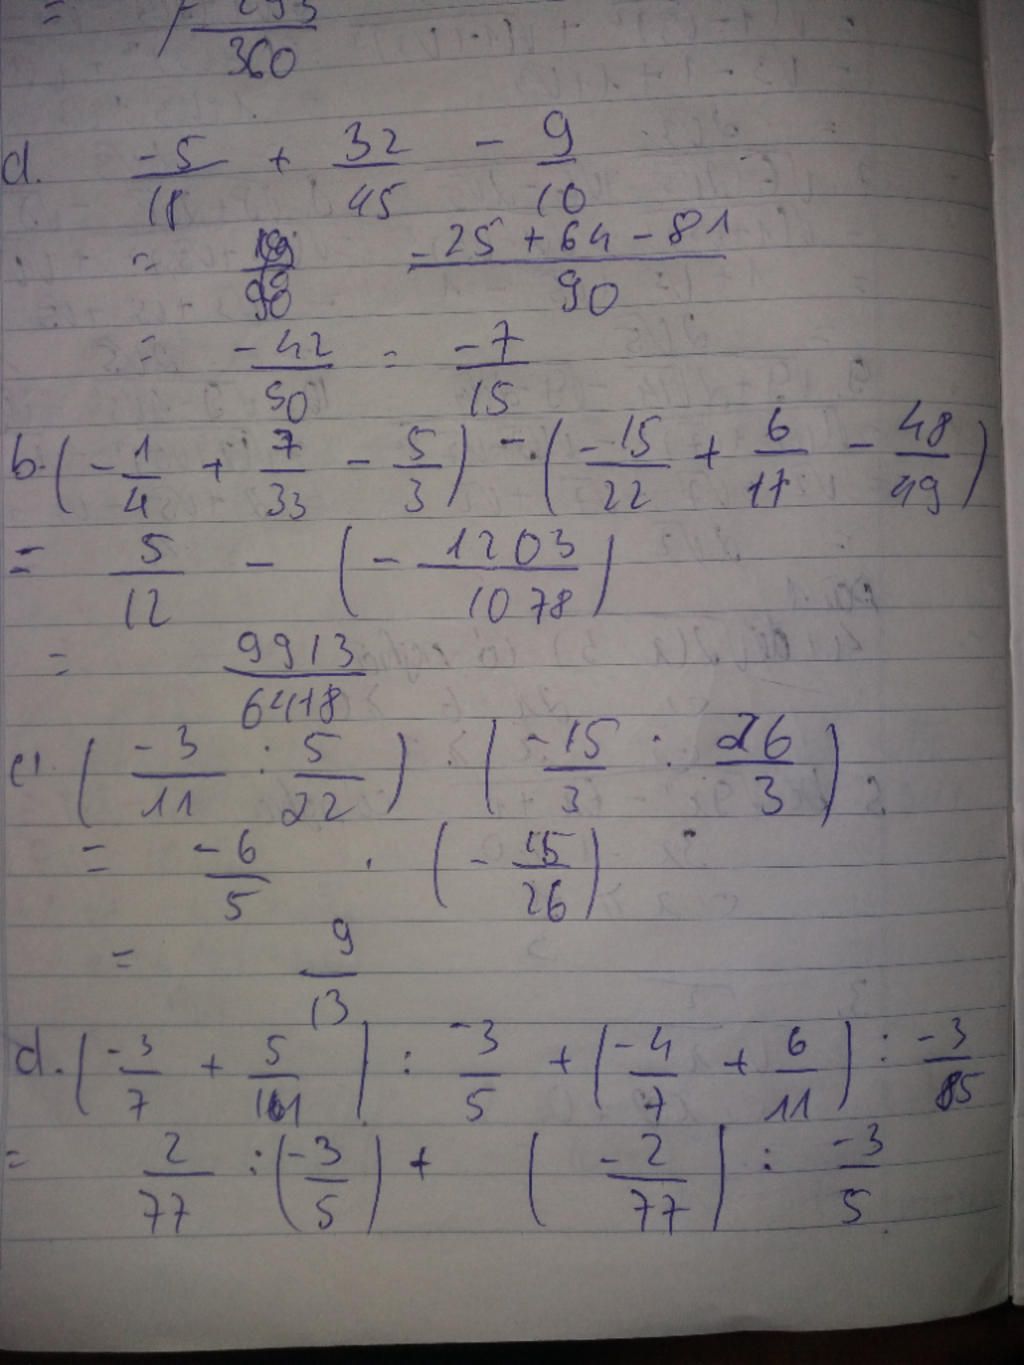 = - 293/360
d. -5/18 + 32/45 - 9/10
= -25 + 64 - 81/90
= -42/90 = -7/15
b. (-1/4 + 7/33 - 5/3) - (-15/22 + 6/11 - 48/49)
= 5/12 - (-1203/1078)
= 9913/6418
c. (-3/11 : 5/22) . (-15/3 : 26/3)
= -6/5 . (-15/26)
= 9/13
d. (-3/7 + 5/11) : -3/5 + (-4/7 + 6/11) : -3/5
= 2/77 : (-3/5) + (-2/77) : -3/5